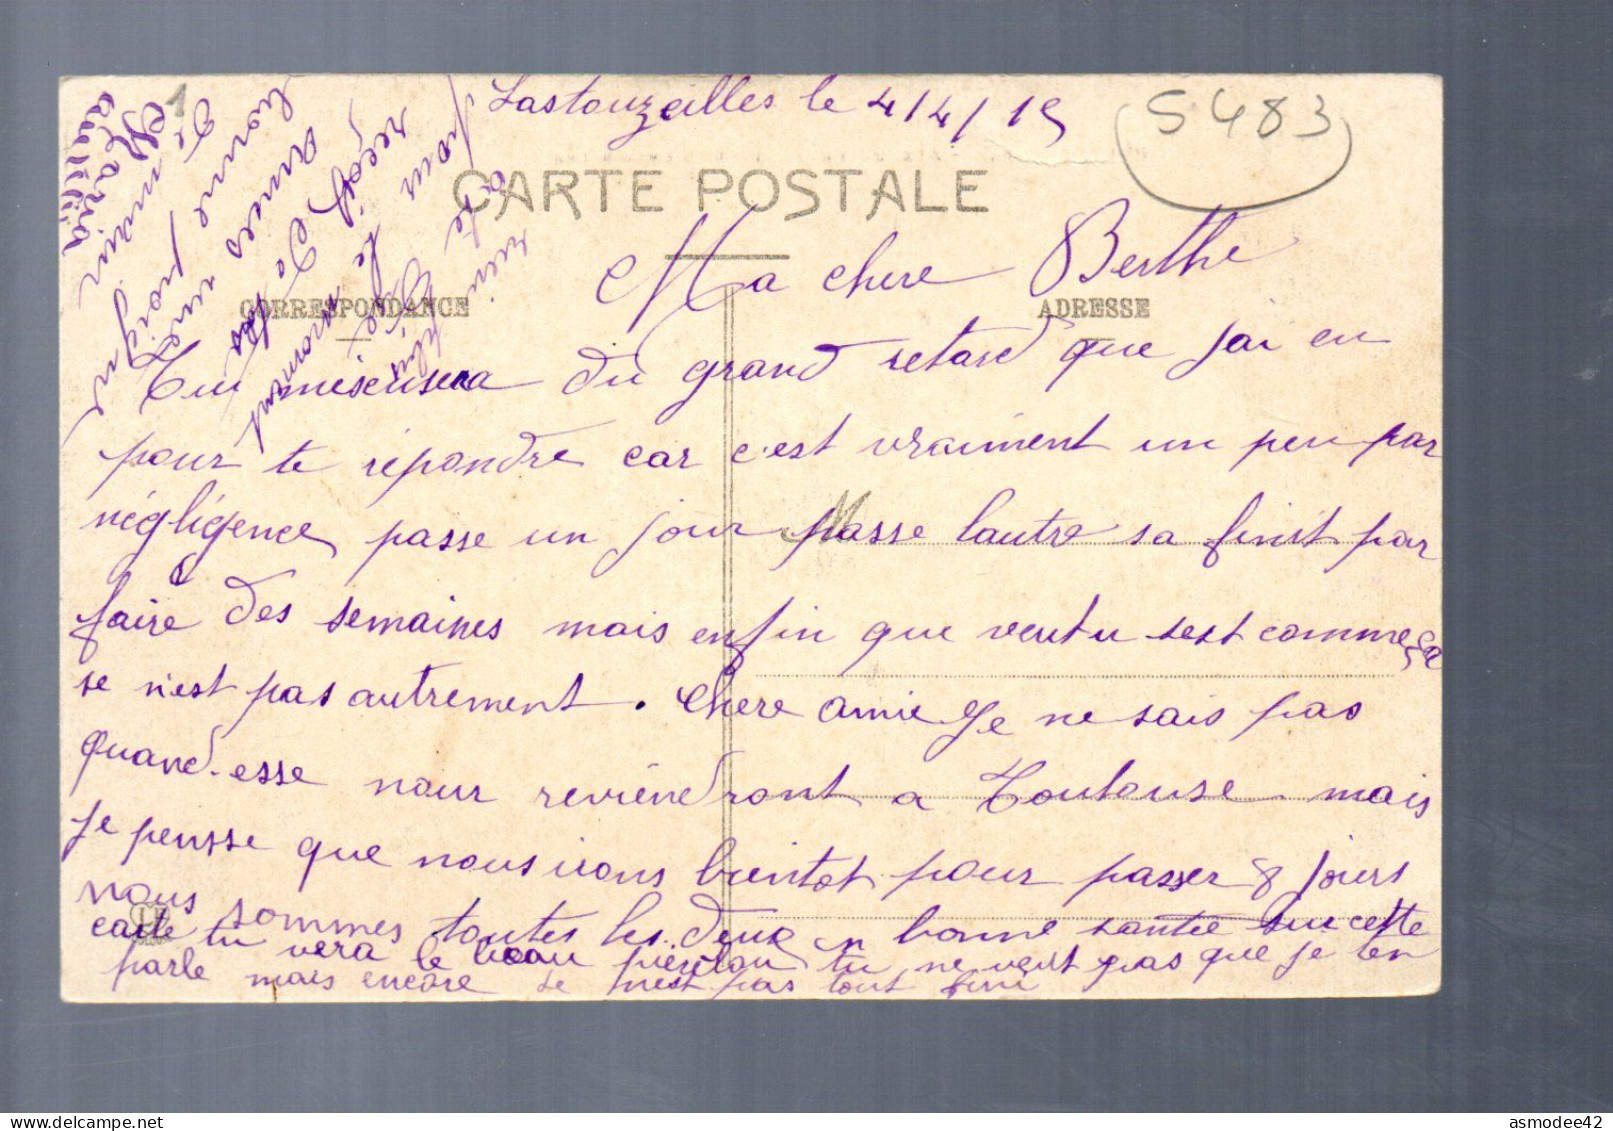 Lastouzeilles le 4/4/15
5483
1
CARTE POSTALE
Ma chere Berthe
CORRESPONDANCE
ADRESSE
Tu mescusera du grand retard que jai eu
pour te répondre car c'est vraiment un peu par
négligence, passe un jour passe lautre sa finit par
faire des semaines mais enfin que veutu sest comme ça
se n'est pas autrement. Chere amie Je ne sais pas
quand-esse nous reviendront a Toulouse mais
je pensse que nous irons bientot pour passer 8 jours
nous sommes toutes les deux en bonne santée sur cette
carte tu vera le beau tu ne veut pas que je ten
parle mais encore se n'est pas tout fini
pour
recoit le
Amies une
bonne poigné
De main
Maria
asmodee42